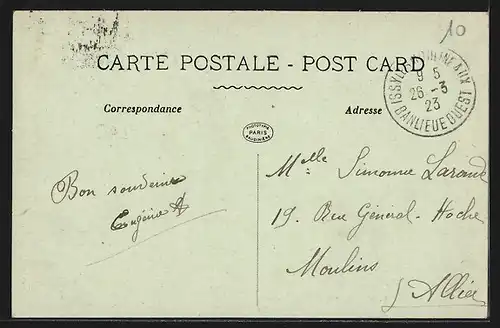 10
CARTE POSTALE - POST CARD
Correspondance
Adresse
ISSY LES MOULINEAUX
9 5
26 - 3
23
BANLIEUE OUEST
PARIS
Melle Simonne
19. Rue Général - Hoche
Moulins
Allier
Bon souvenir
Eugénie A